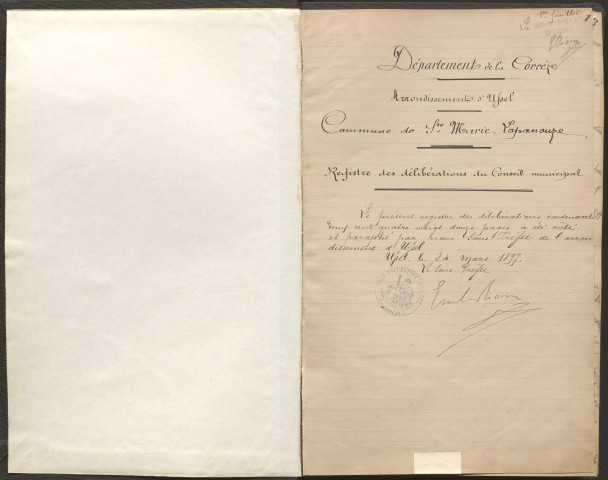 1er feuillet
Département de la Corrèze
Arrondissement d'Ussel
Commune de Ste Marie-Lapanouze
Registre des délibérations du Conseil municipal
Le présent registre des délibérations contenant
cent quatre vingt douze pages a été coté
et paraphé par nous Sous Préfet de l'arron
dissement d'Ussel
Ussel le 24 Mars 1897.
Le Sous Préfet